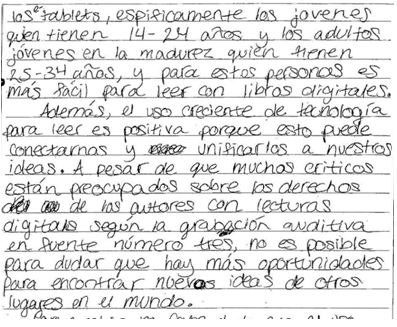 los tablets, espificamente los jovenes
quien tienen 14-24 años y los adultos
jóvenes en la madurez quien tienen
25-34 años, y para estos personas es
más fácil para leer con libros digitales.
Además, el uso creciente de tecnología
para leer es positiva porque esto puede
conectarnas y unificarlos a nuestros
ideas. A pesar de que muchos criticos
están preocupados sobre los derechos
de los autores con lecturas
digitals según la grabación auditiva
en fuente número tres, no es posible
para dudar que hay más oportunidades
para encontrar nuevos ideas de otros
lugares en el mundo.